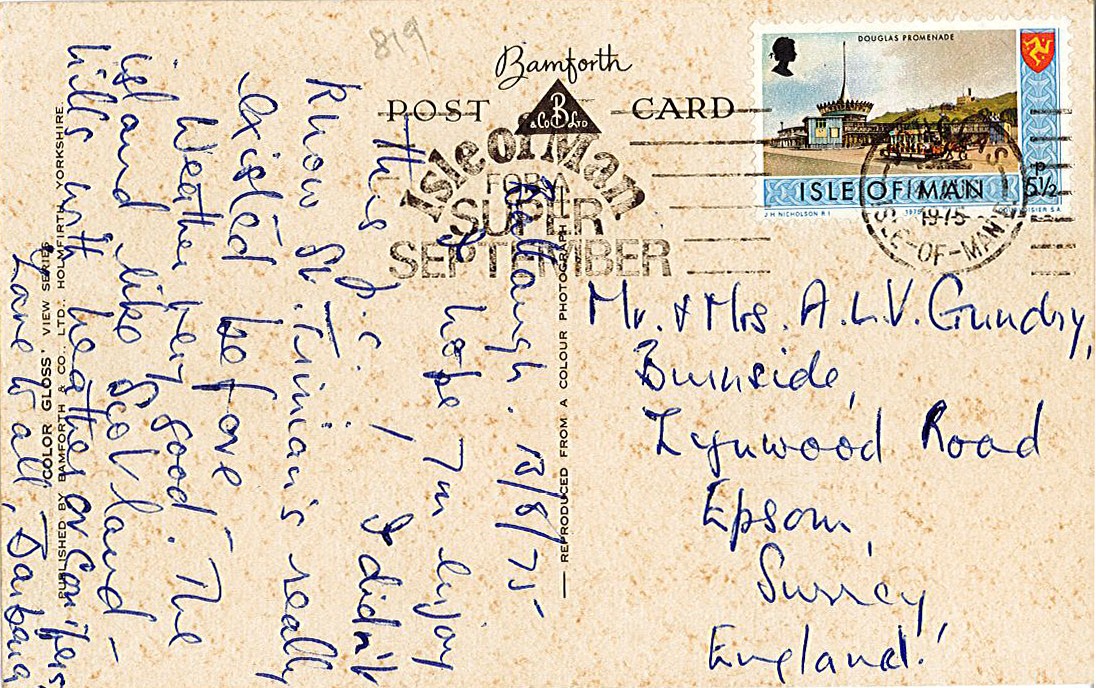 819
Bamforth
POST CARD
B
& Co LTD
Isle of Man
FOR A
SUPER
SEPTEMBER
DOUGLAS PROMENADE
ISLE OF MAN
5½ P
J H NICHOLSON R I
1975
ISLE-OF-MAN
Mr. & Mrs. A. L. V. Gundry,
Burnside,
Lynwood Road
Epsom,
Surrey
England!
REPRODUCED FROM A COLOUR PHOTOGRAPH
Ballaugh. 13/8/75
I hope I'm enjoy
this p.c.! I didn't
know St. Trinian's really
existed before -
Weather very good. The
island like Scotland -
hills with heather or Conifers,
Love to all, Barbara
'COLOR GLOSS' VIEW SERIES
PUBLISHED BY BAMFORTH & CO., LTD., HOLMFIRTH, YORKSHIRE.